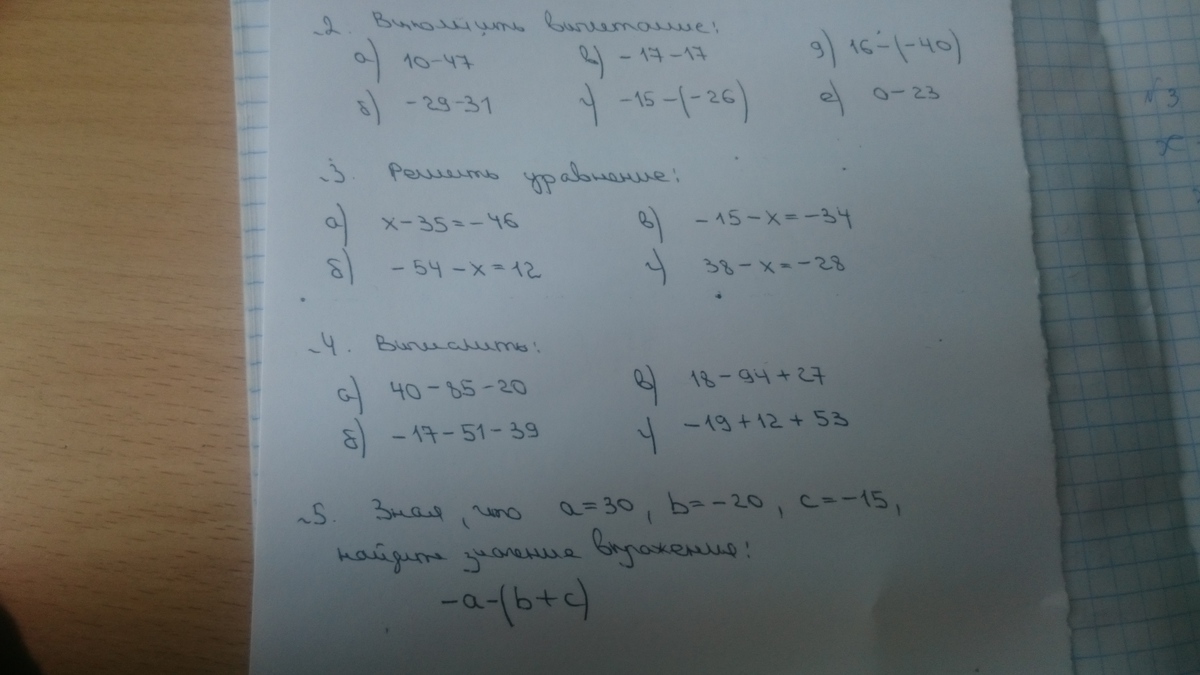 №2. Выполнить вычитание:
а) 10-47 в) -17-17 д) 16-(-40)
б) -29-31 г) -15-(-26) е) 0-23
№3. Решить уравнение:
а) x-35=-46 в) -15-x=-34
б) -54-x=12 г) 38-x=-28
№4. Вычислить:
а) 40-85-20 в) 18-94+27
б) -17-51-39 г) -19+12+53
№5. Зная, что a=30, b=-20, c=-15,
найдите значение выражения:
-a-(b+c)
№3
x